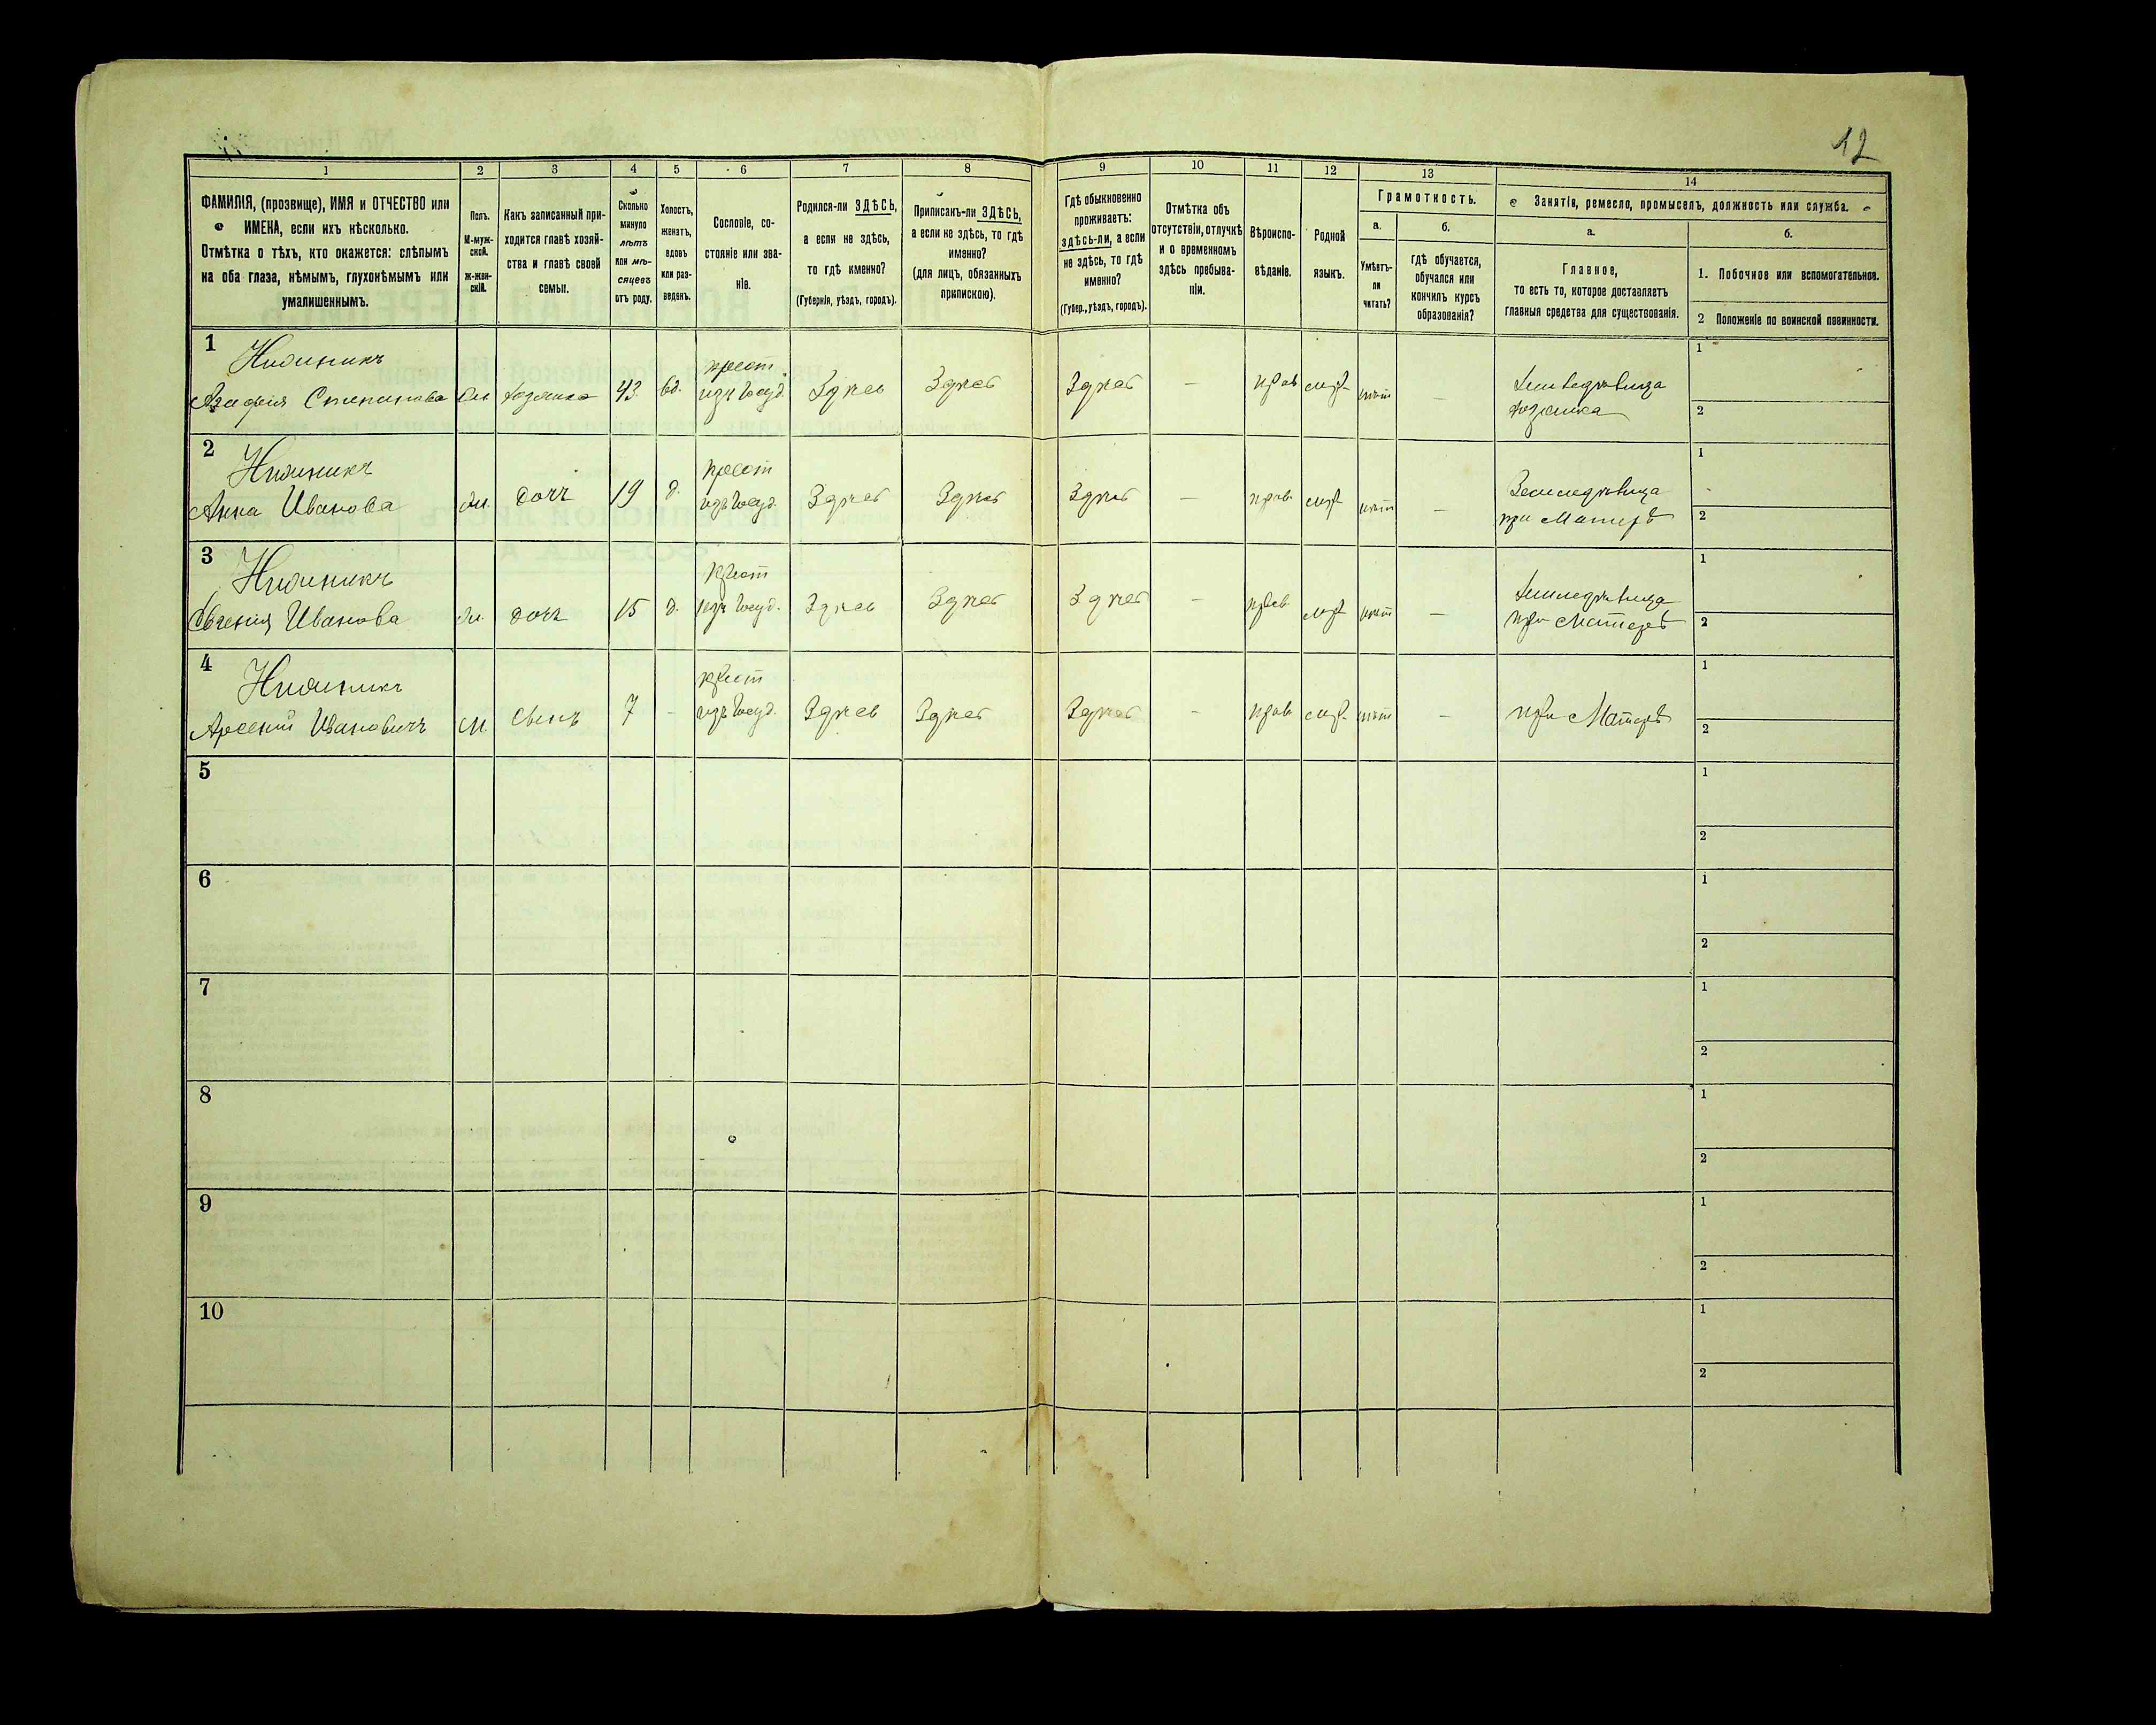 12
1
2
3
4
5
6
7
8
9
10
11
12
13
14
ФАМИЛІЯ, (прозвище), ИМЯ и ОТЧЕСТВО или
ИМЕНА, если ихъ нѣсколько.
Отмѣтка о тѣхъ, кто окажется: слѣпымъ
на оба глаза, нѣмымъ, глухонѣмымъ или
умалишеннымъ.
Полъ.
М-муж-
ской.
ж-жен-
скій.
Какъ записанный при-
ходится главѣ хозяй-
ства и главѣ своей
семьи.
Сколько
минуло
лѣтъ
или мѣ-
сяцевъ
отъ роду.
Холостъ,
женатъ,
вдовъ
или раз-
веденъ.
Сословіе, со-
стояніе или зва-
ніе.
Родился-ли ЗДѢСЬ,
а если не здѣсь,
то гдѣ именно?
(Губернія, уѣздъ, городъ).
Приписанъ-ли ЗДѢСЬ,
а если не здѣсь, то гдѣ
именно?
(для лицъ, обязанныхъ
припискою).
Гдѣ обыкновенно
проживаетъ:
здѣсь-ли, а если
не здѣсь, то гдѣ
именно?
(Губер., уѣздъ, городъ).
Отмѣтка объ
отсутствіи, отлучкѣ
и о временномъ
здѣсь пребыва-
ніи.
Вѣроиспо-
вѣданіе.
Родной
языкъ.
Грамотность.
а.
Умѣетъ-
ли
читать?
б.
гдѣ обучается,
обучался или
кончилъ курсъ
образованія?
Занятія, ремесло, промыселъ, должность или служба.
а.
Главное,
то есть то, которое доставляетъ
главныя средства для существованія.
б.
1. Побочное или вспомогательное.
2 Положеніе по воинской повинности.
1
Агафія Степанова
хозяйка 43 вд. крест
изъ Госуд. Здѣсь Здѣсь Здѣсь — прав мар нѣтъ —
хозяйка
1
2
2
Анна Иванова
дочь 19 д. крест
изъ Госуд. Здѣсь Здѣсь Здѣсь — прав. нѣтъ —
Земледѣлица
при Матерѣ
1
2
3
Евгенія Иванова
дочь 15 д. крест
изъ Госуд. Здѣсь Здѣсь Здѣсь — прав. нѣтъ —
Земледѣлица
при Матерѣ
1
2
4
Арсений Ивановичъ
М. сынъ 7 - крест
изъ Госуд. Здѣсь Здѣсь Здѣсь — прав нѣтъ —
при Матерѣ
1
2
5
1
2
6
1
2
7
1
2
8
1
2
9
1
2
10
1
2